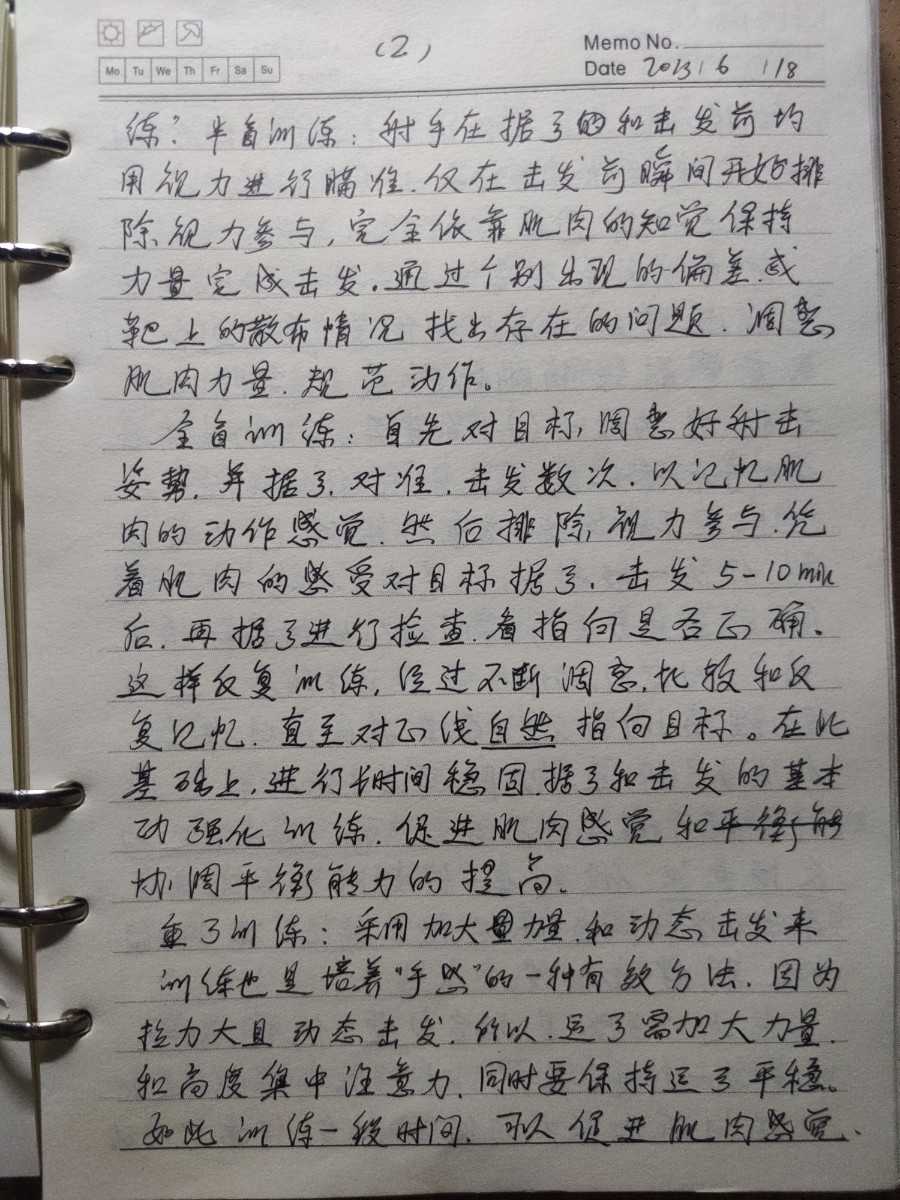 (2)
Memo No.
Mo Tu We Th Fr Sa Su
Date 2023 / 6 / 18
练”半盲训练：射手在据弓的和击发前均
用视力进行瞄准.仅在击发前瞬间开始排
除视力参与,完全依靠肌肉的知觉保持
力量完成击发.通过个别出现的偏差或
靶上的散布情况找出存在的问题.调整
肌肉力量.规范动作。
全盲训练：首先对目标,调整好射击
姿势.并据弓.对准.击发数次.以记忆肌
肉的动作感觉.然后排除视力参与.凭
着肌肉的感受对目标据弓.击发5-10min
后.再据弓进行检查.看指向是否正确.
这样反复训练,经过不断调整.比较和反
复记忆.直至对正线自然指向目标。在此
基础上,进行长时间稳固据弓和击发的基本
功强化训练.促进肌肉感觉和平衡能
协调平衡能力的提高。
重弓训练：采用加大量力量.和动态击发来
训练也是培养“手感”的一种有效方法.因为
拉力大且动态击发.所以.运弓需加大力量.
和高度集中注意力.同时要保持运弓平稳。
如此训练一段时间.可以促进肌肉感觉.